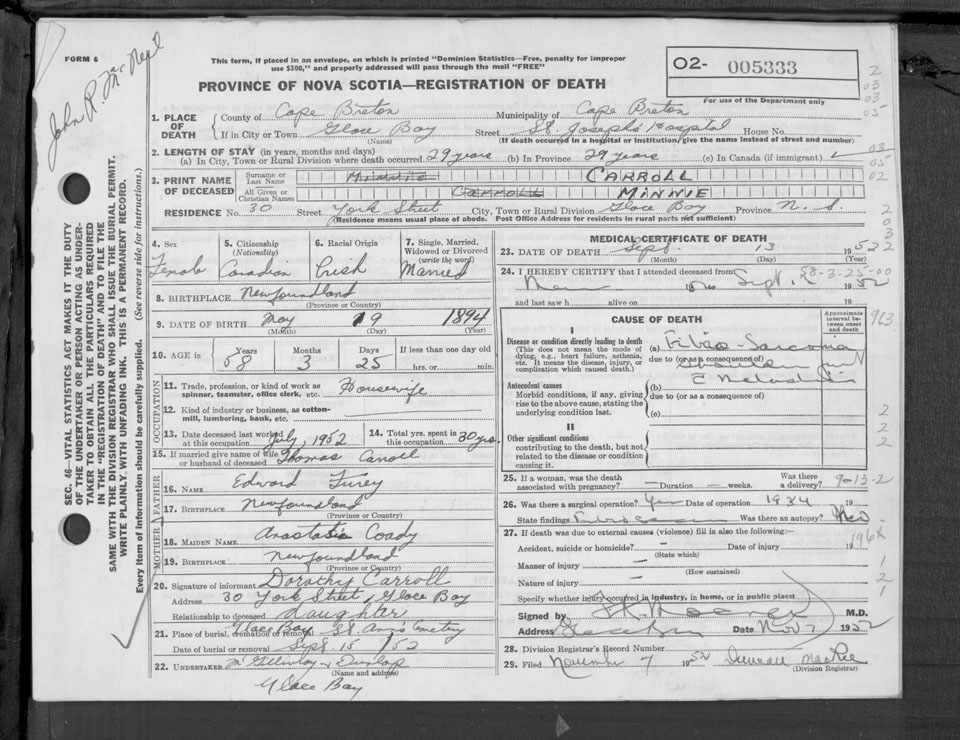 FORM 6
John R. MacNeil
This form, if placed in an envelope, on which is printed "Dominion Statistics—Free, penalty for improper
use $300," and properly addressed will pass through the mail "FREE"
PROVINCE OF NOVA SCOTIA—REGISTRATION OF DEATH
02- 005333
For use of the Department only
SEC. 46—VITAL STATISTICS ACT MAKES IT THE DUTY
OF THE UNDERTAKER OR PERSON ACTING AS UNDER-
TAKER TO OBTAIN ALL THE PARTICULARS REQUIRED
IN THE "REGISTRATION OF DEATH" AND TO FILE THE
SAME WITH THE DIVISION REGISTRAR WHO SHALL ISSUE THE BURIAL PERMIT.
WRITE PLAINLY, WITH UNFADING INK. THIS IS A PERMANENT RECORD.
Every item of Information should be carefully supplied. (See reverse side for instructions.)
1. PLACE OF DEATH
County of Cape Breton Municipality of Cape Breton
If in City or Town Glace Bay Street St. Joseph's Hospital House No.
(Name) (If death occurred in a hospital or institution/give the name instead of street and number)
2. LENGTH OF STAY (in years, months and days)
(a) In City, Town or Rural Division where death occurred 29 years (b) In Province 29 years (c) In Canada (if immigrant)
3. PRINT NAME OF DECEASED
Surname or Last Name MINNIE CARROLL
All Given or Christian Names CARROLL MINNIE
RESIDENCE No. 30 Street York Street City, Town or Rural Division Glace Bay Province N.S.
(Residence means usual place of abode. Post Office Address for residents in rural parts not sufficient)
4. Sex
5. Citizenship (Nationality)
6. Racial Origin
7. Single, Married, Widowed or Divorced (write the word)
Female Canadian Irish Married
8. BIRTHPLACE Newfoundland
(Province or Country)
9. DATE OF BIRTH May 19 1894
(Month) (Day) (Year)
10. AGE in Years Months Days If less than one day old
58 3 25 hrs. or min.
OCCUPATION
11. Trade, profession, or kind of work as
spinner, teamster, office clerk, etc. Housewife
12. Kind of industry or business, as cotton-
mill, lumbering, bank, etc.
13. Date deceased last worked
at this occupation July, 1952
14. Total yrs. spent in
this occupation 30 yrs.
15. If married give name of wife
or husband of deceased Thomas Carroll
FATHER
16. NAME Edward Furey
17. BIRTHPLACE Newfoundland
(Province or Country)
MOTHER
18. MAIDEN NAME Anastasia Coady
19. BIRTHPLACE Newfoundland
(Province or Country)
20. Signature of informant Dorothy Carroll
Address 30 York Street, Glace Bay
Relationship to deceased daughter
21. Place of burial, cremation or removal Glace Bay St. Anns Cemetry
Date of burial or removal Sept. 15 /52
22. UNDERTAKER & Dunlop
(Name and address)
Glace Bay
MEDICAL CERTIFICATE OF DEATH
23. DATE OF DEATH Sept. 13 1952
(Month) (Day) (Year)
24. I HEREBY CERTIFY that I attended deceased from
to Sept. 1952
58-3-25-00
and last saw h alive on
CAUSE OF DEATH
Approximate interval between onset and death
I
Disease or condition directly leading to death
(This does not mean the mode of
dying, e.g., heart failure, asthenia,
etc. It means the disease, injury, or
complication which caused death.)
(a) Fibro-Sarcoma
due to (or as a consequence of)
Shoulder
Antecedent causes
Morbid conditions, if any, giving
rise to the above cause, stating the
underlying condition last.
(b)
due to (or as a consequence of)
(c)
II
Other significant conditions
contributing to the death, but not
related to the disease or condition
causing it.
25. If a woman, was the death
associated with pregnancy? — Duration — weeks.
Was there
a delivery?
9-13-2
26. Was there a surgical operation? Yes Date of operation 1934 19
State findings Was there an autopsy? No
27. If death was due to external causes (violence) fill in also the following:—
Accident, suicide or homicide? — Date of injury 19
(State which)
196X
Manner of injury —
(How sustained)
Nature of injury —
Specify whether injury occurred in industry, in home, or in public place
Signed by M.D.
Address Date Nov 7 1952
28. Division Registrar's Record Number
29. Filed November 7 1952 Duncan MacRae
(Division Registrar)